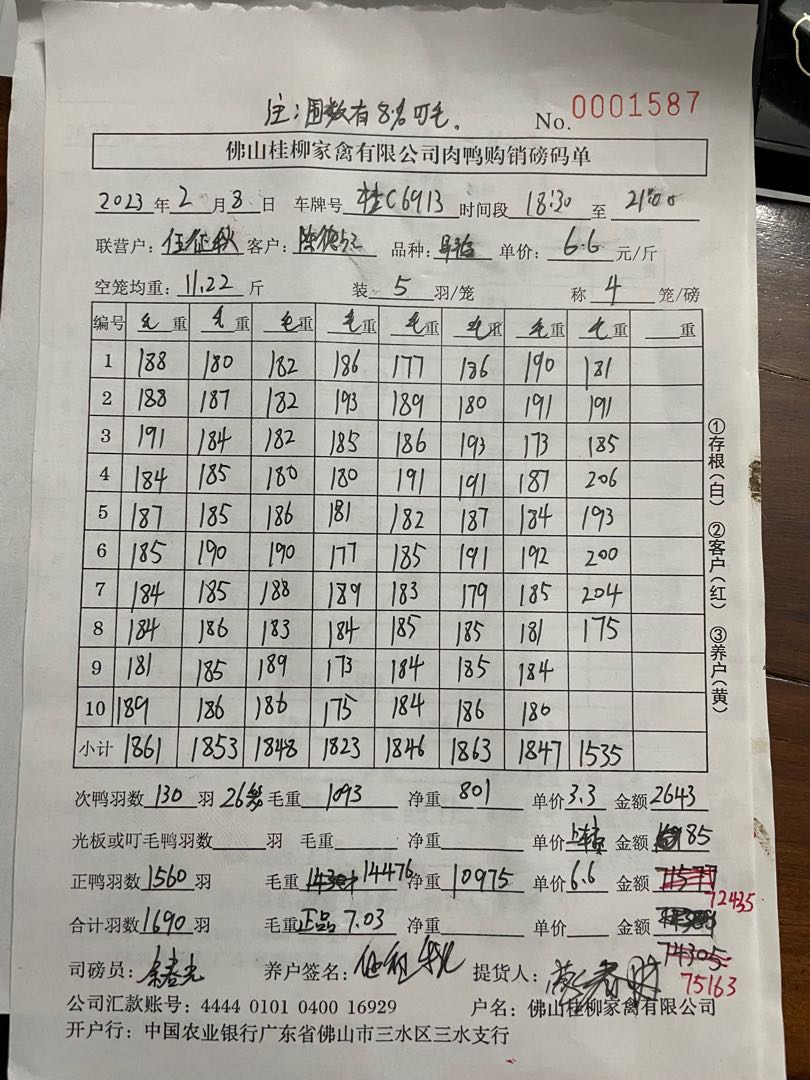 注:围数有8%叮毛。
No. 0001587
佛山桂柳家禽有限公司肉鸭购销磅码单
2023年2月8日 车牌号 桂C6913 时间段 18:30 至 21:00
联营户: 客户: 陈德 品种: 单价: 6.6 元/斤
空笼均重: 11.22 斤 装 5 羽/笼 称 4 笼/磅
编号 毛重 毛重 毛重 毛重 毛重 毛重 毛重 毛重 重
1 188 180 182 186 177 186 190 181
2 188 187 182 193 189 180 191 191
3 191 184 182 185 186 193 173 185
4 184 185 180 180 191 191 187 206
5 187 185 186 181 182 187 184 193
6 185 190 190 177 185 191 192 200
7 184 185 188 189 183 179 185 204
8 184 186 183 184 185 185 181 175
9 181 185 189 173 184 185 184
10 189 186 186 175 184 186 180
小计 1861 1853 1848 1823 1846 1863 1847 1535
次鸭羽数 130 羽 26笼 毛重 1093 净重 801 单价 3.3 金额 2643
光板或叮毛鸭羽数 羽 毛重 净重 单价 金额 85
正鸭羽数 1560 羽 毛重 14476 净重 10975 单价 6.6 金额 71577
72435
合计羽数 1690 羽 毛重 正品 7.03 净重 单价 金额
74305
75163
司磅员: 养户签名: 提货人:
公司汇款账号:4444 0101 0400 16929 户名:佛山桂柳家禽有限公司
开户行:中国农业银行广东省佛山市三水区三水支行
①存根(白) ②客户(红) ③养户(黄)